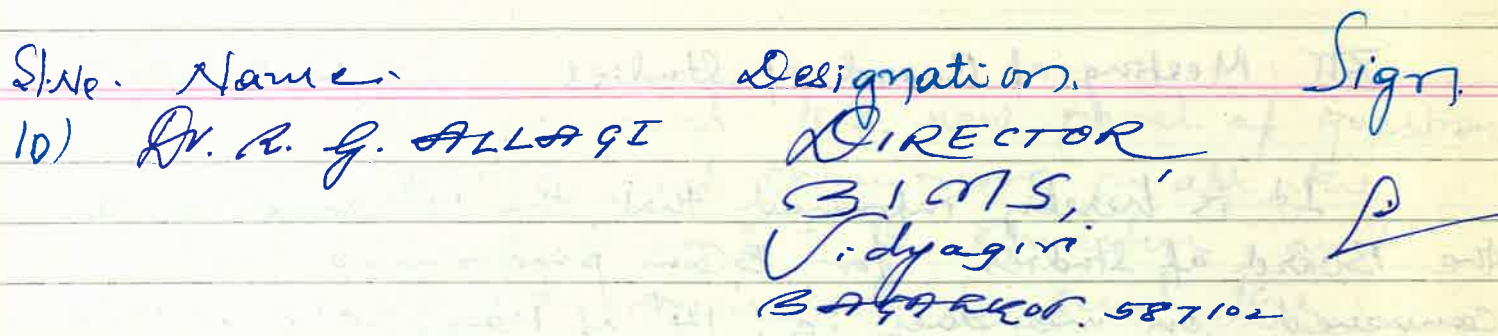 Sl.No. Name. Designation. Sign.
10) Dr. R. G. ALLAGI DIRECTOR,
BIMS,
Vidyagiri
BAGALKOT. 587102